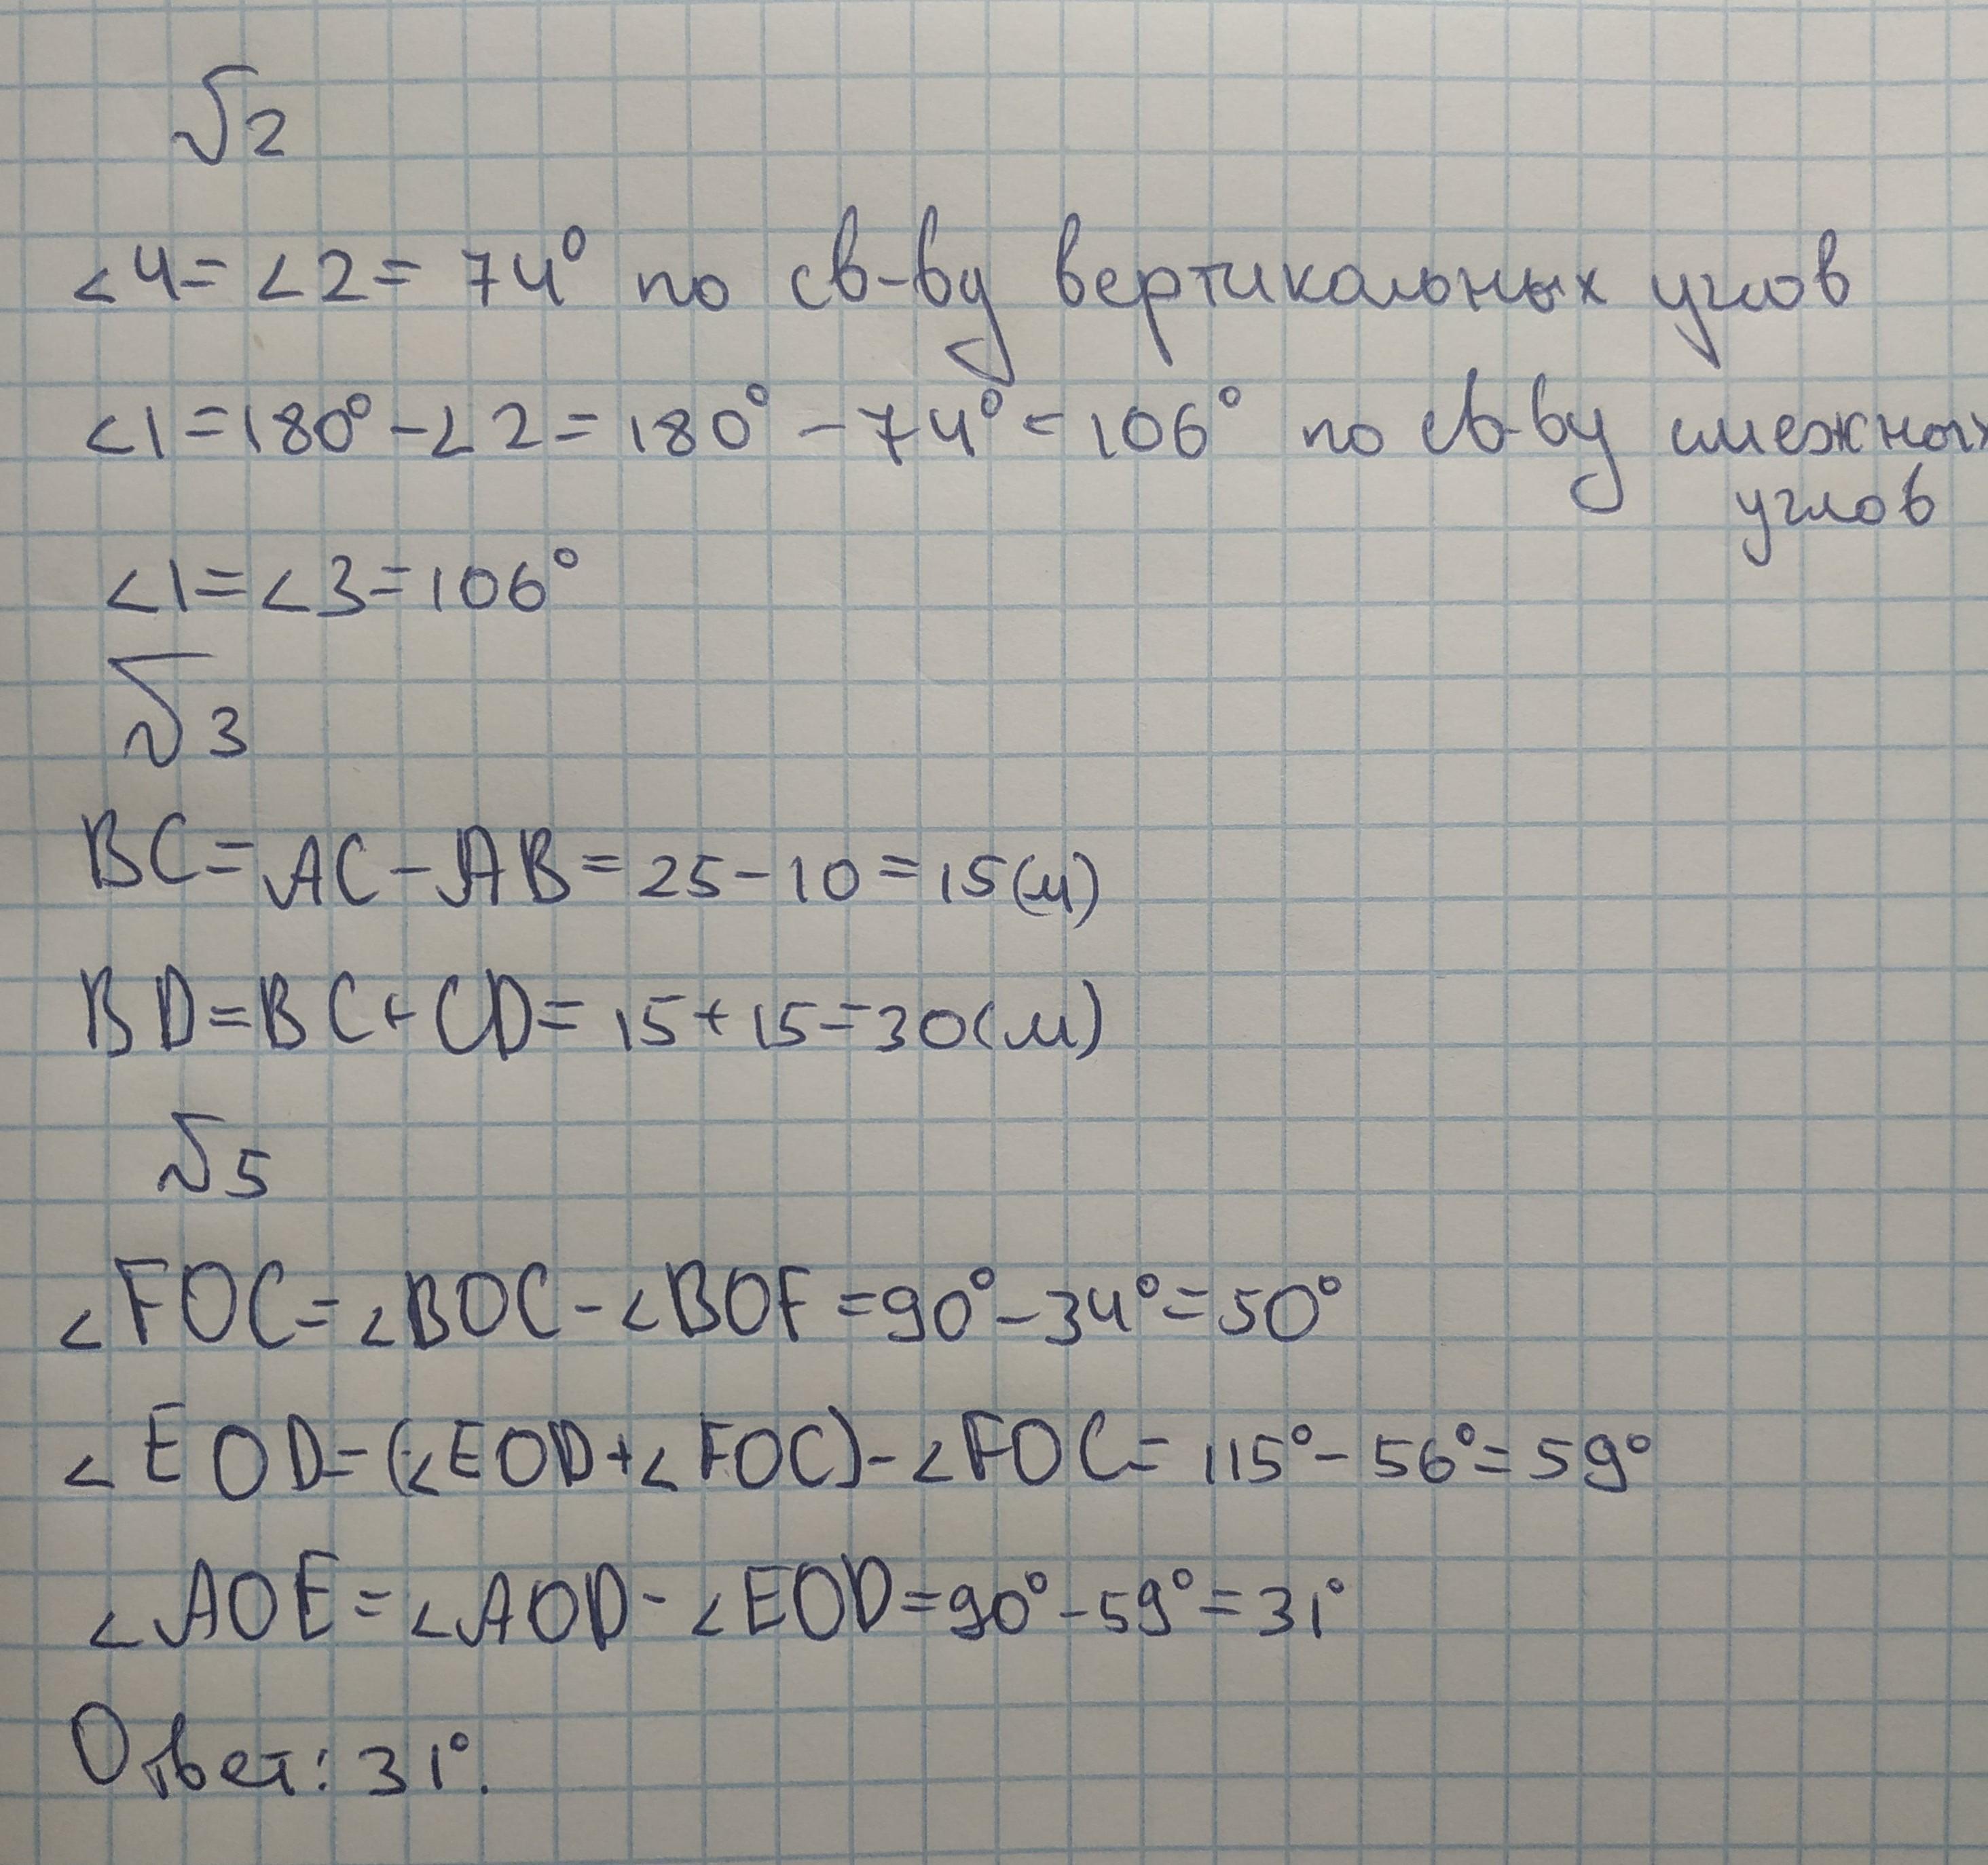 №2
∠4=∠2=74° по св-ву вертикальных углов
∠1=180°-∠2=180°-74°=106° по св-ву смежных
углов
∠1=∠3=106°
№3
BC=AC-AB=25-10=15(м)
BD=BC+CD=15+15=30(м)
№5
∠FOC=∠BOC-∠BOF=90°-34°=50°
∠EOD=(∠EOD+∠FOC)-∠FOC=115°-56°=59°
∠AOE=∠AOD-∠EOD=90°-59°=31°
Ответ: 31°.